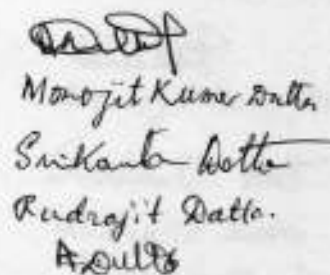 Monojit Kumar Datta
Srikanta Dotta
Rudrajit Datta.
A Dutta